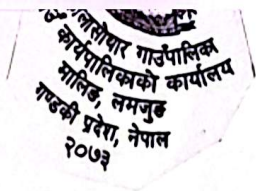 गाउँपालिका
कार्यपालिकाको कार्यालय
मालिङ, लमजुङ
गण्डकी प्रदेश, नेपाल
२०७३